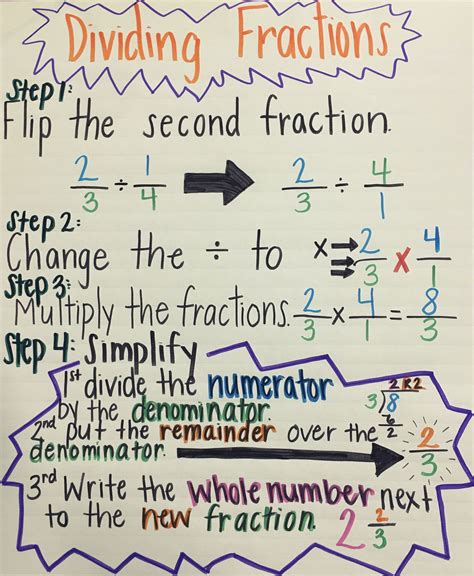 Dividing Fractions
Step 1:
Flip the second fraction.
2/3 ÷ 1/4 → 2/3 ÷ 4/1
Step 2:
Change the ÷ to × 2/3 × 4/1
Step 3:
Multiply the fractions. 2/3 × 4/1 = 8/3
Step 4: Simplify
1st divide the numerator
by the denominator.
2 R2
3)8
6
2
2nd put the remainder over the
denominator. 2/3
3rd Write the whole number next
to the new fraction. 2 2/3